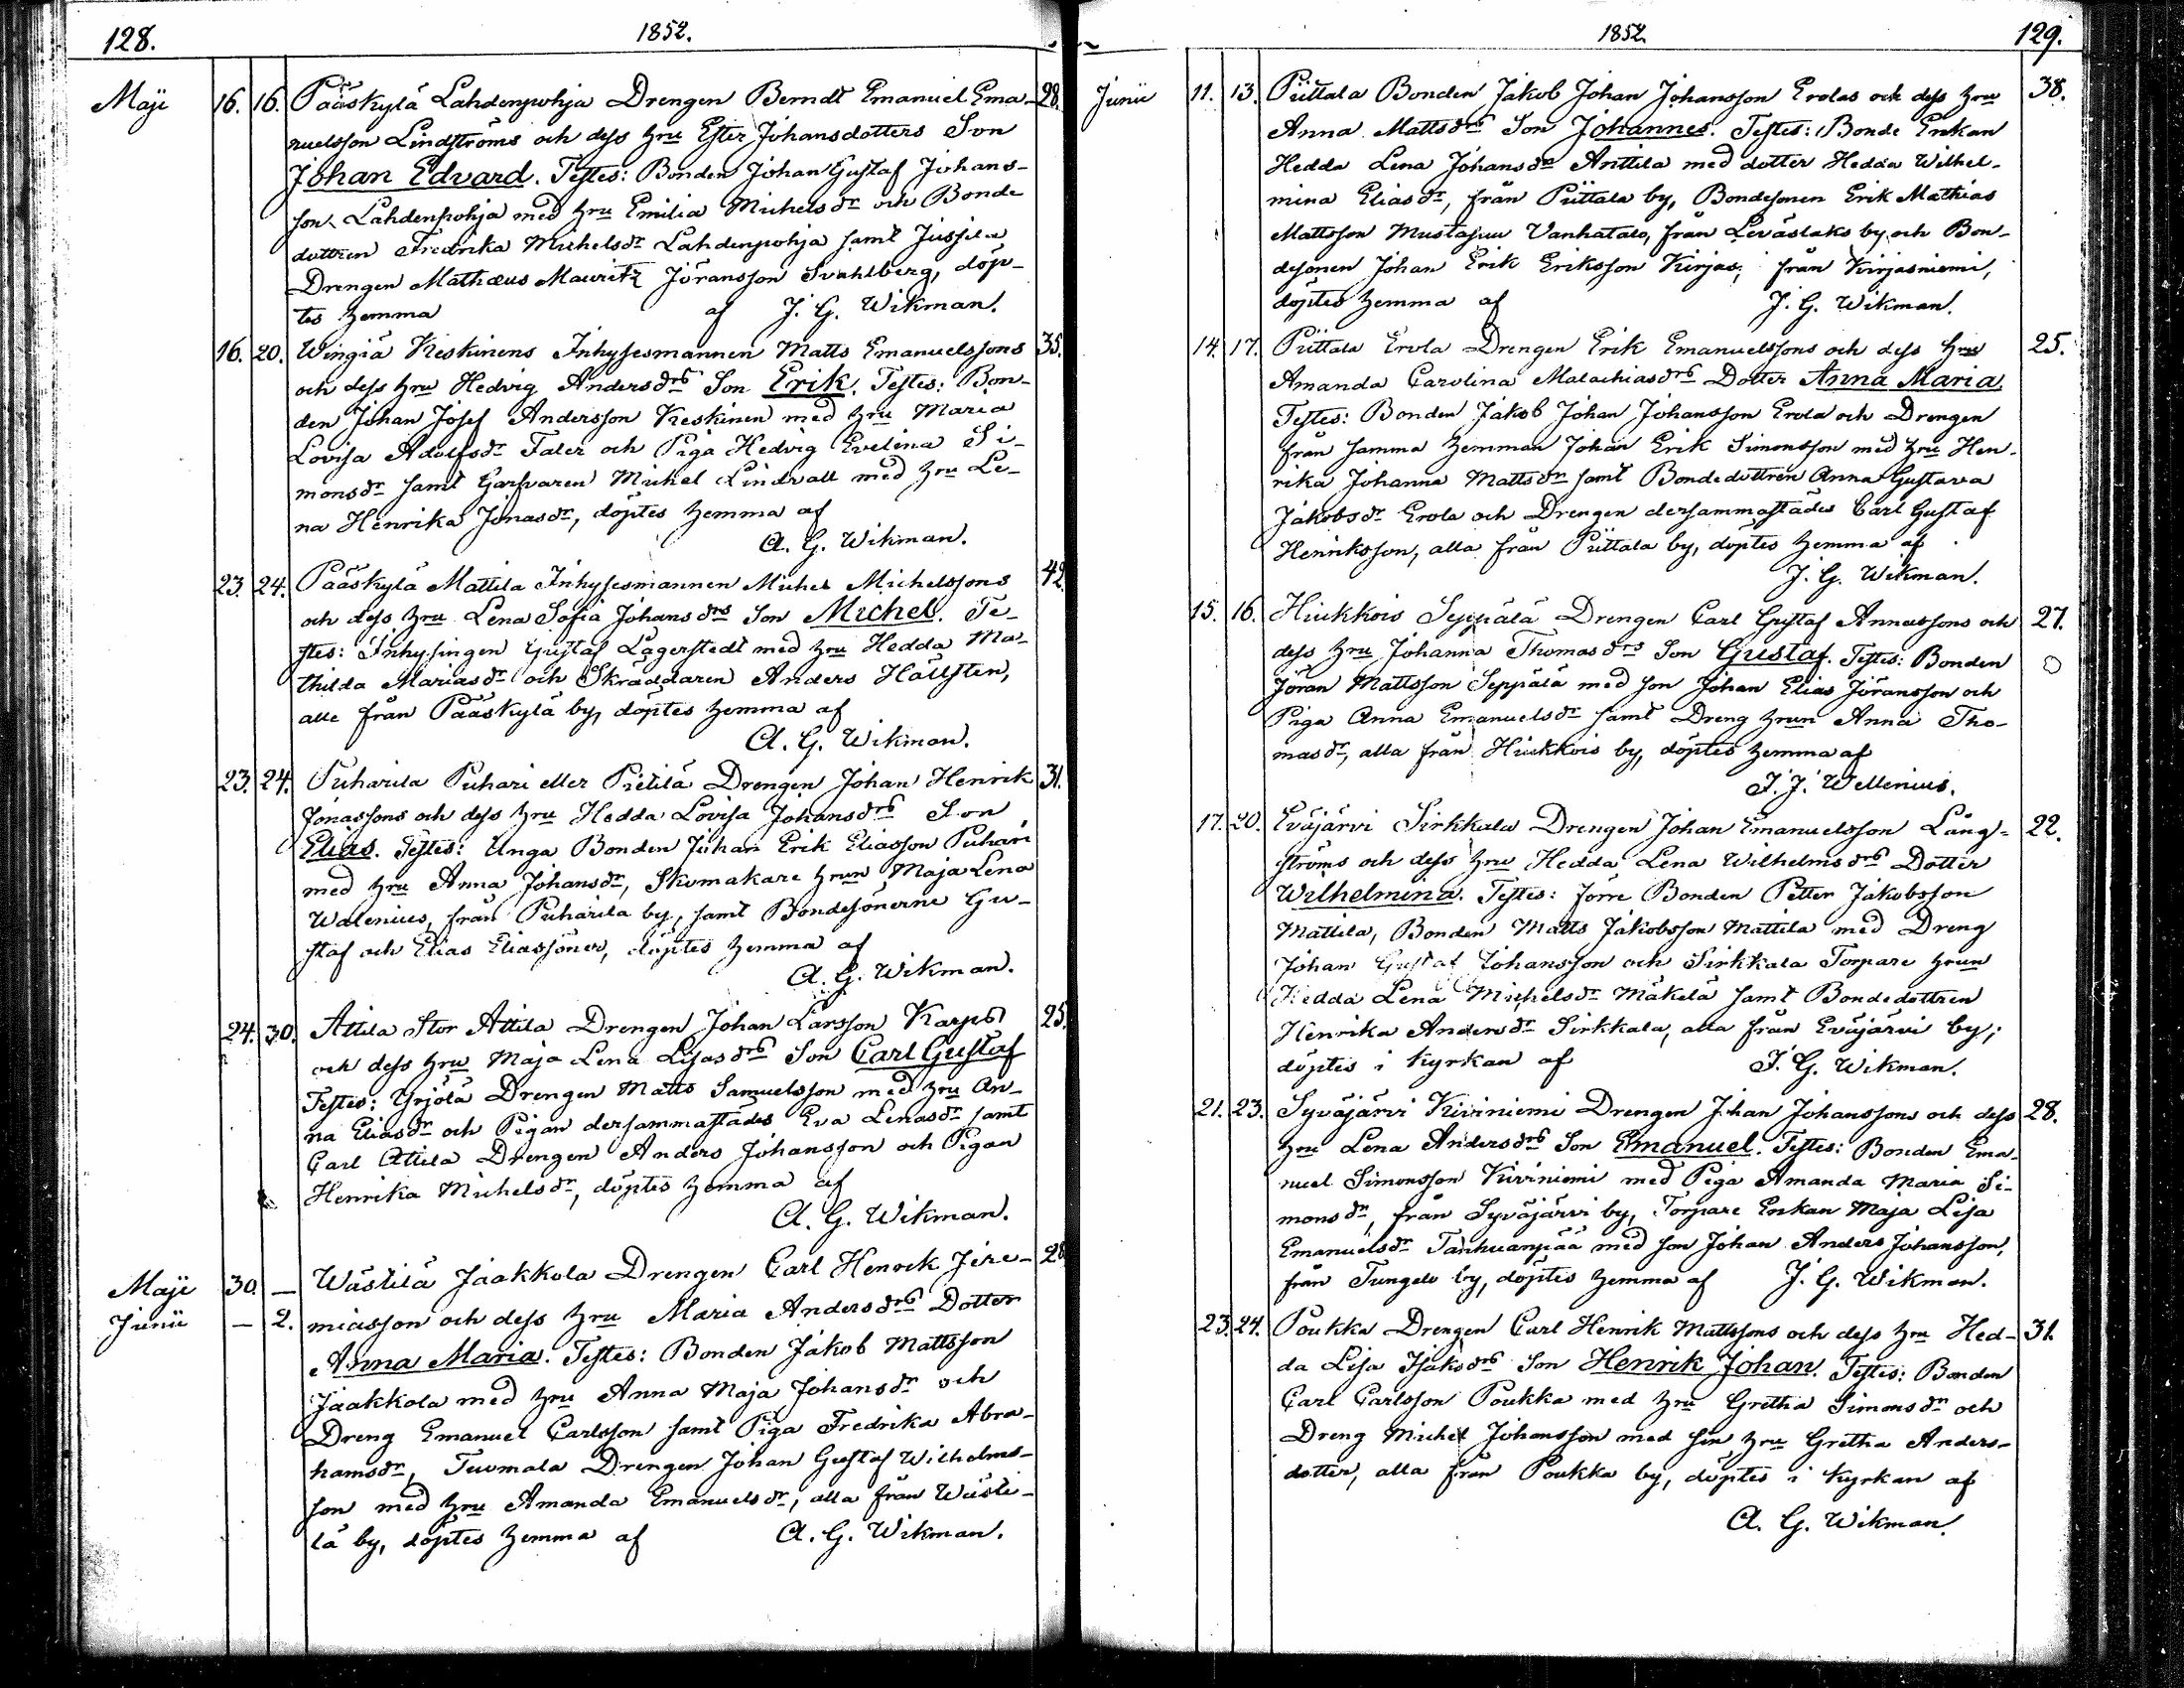 128. 1852.
Maji 16. 16. Pääskylä Lahdenpohja Drengen Berndt Emanuel Ema- 28.
nuelsson Lindströms och dess hru Ester Johansdotters Son
Johan Edvard. Testes: Bonden Johan Gustaf Johans-
son Lahdenpohja med hru Emilia Michelsdr och Bonde
dottren Fredrika Michelsdr Lahdenpohja samt Jussila
Drengen Mathæus Mauritz Jöransson Svahlberg, döp-
tes hemma af J. G. Wikman.
16. 20. Wingiä Keskinens Inhysesmannen Matts Emanuelssons 35.
och dess hru Hedvig Andersdrs Son Erik. Testes: Bon-
den Johan Josef Andersson Keskinen med hru Maria
Lovisa Adolfsdr Faler och Piga Hedvig Evelina Si-
monsdr samt Garfvaren Michel Lindvall med hru Le-
na Henrika Jonasdr, döptes hemma af
A. G. Wikman.
23. 24. Pääskylä Mattila Inhysesmannen Michel Michelssons 42.
och dess hru Lena Sofia Johansdrs Son Michel. Te-
stes: Inhysingen Gustaf Lagerstedt med hru Hedda Ma-
thilda Mariasdr och Skräddaren Anders Hällsten,
alle från Pääskylä by, döptes hemma af
A. G. Wikman.
23. 24. Puharila Puhari eller Pietilä Drengen Johan Henrik 31.
Jonassons och dess hru Hedda Lovisa Johansdrs Son
Elias. Testes: Unga Bonden Johan Erik Eliasson Puhari
med hru Anna Johansdr, Skomakare hrun Maja Lena
Walenius, från Puharila by, samt Bondesönerne Gu-
staf och Elias Eliassöner, döptes hemma af
A. G. Wikman.
24. 30. Attila Stor Attila Drengen Johan Larsson Karps 25.
och dess hru Maja Lena Lisasdrs Son Carl Gustaf
Testes: Yrjölä Drengen Matts Samuelsson med hru An-
na Eliasdr och Pigan dersammastädes Eva Lenasdr samt
Carl Attila Drengen Anders Johansson och Pigan
Henrika Michelsdr, döptes hemma af
A. G. Wikman.
Maji 30. — Wästilä Jaakkola Drengen Carl Henrik Jere- 28
Junii — 2. miasson och dess hru Maria Andersdrs Dotter
Anna Maria. Testes: Bonden Jakob Mattsson
Jaakkola med hru Anna Maja Johansdr och
Dreng Emanuel Carlsson samt Piga Fredrika Abra-
hamsdr, Tuomala Drengen Johan Gustaf Wilhelms-
son med hru Amanda Emanuelsdr, alla från Wästi-
lä by, döptes hemma af A. G. Wikman.
1852. 129.
Junii 11. 13. Püttala Bonden Jakob Johan Johansson Erolas och dess hru 38.
Anna Mattsdrs Son Johannes. Testes: Bonde Enkan
Hedda Lena Johansdr Anttila med dotter Hedda Wilhel-
mina Eliasdr, från Püttala by, Bondesonen Erik Mathias
Mattsson Mustajuu Vanhatalo, från Leväslaks by och Bon-
desonen Johan Erik Eriksson Kirjas, från Kirjasniemi,
döptes hemma af J. G. Wikman.
14. 17. Püttala Erola Drengen Erik Emanuelssons och dess hru 25.
Amanda Carolina Malachiasdrs Dotter Anna Maria.
Testes: Bonden Jakob Johan Johansson Erola och Drengen
från samma hemman Johan Erik Simonsson med hru Hen-
rika Johanna Mattsdr samt Bondedottren Anna Gustava
Jakobsdr Erola och Drengen dersammastädes Carl Gustaf
Henriksson, alla från Püttala by, döptes hemma af
J. G. Wikman.
15. 16. Hiukkois Seppälä Drengen Carl Gustaf Annassons och 27.
dess hru Johanna Thomasdrs Son Gustaf. Testes: Bonden
Jöran Mattsson Seppälä med son Johan Elias Jöransson och
Piga Anna Emanuelsdr samt Dreng hrun Anna Tho-
masdr, alla från Hiukkois by, döptes hemma af
J. J. Wellenius.
17. 20. Eväjärvi Sirkkala Drengen Johan Emanuelsson Lång- 22.
ströms och dess hru Hedda Lena Wilhelmsdrs Dotter
Wilhelmina. Testes: förre Bonden Petter Jakobsson
Mattila, Bonden Matts Jakobsson Mattila med Dreng
Johan Gustaf Johansson och Sirkkala Torpare hrun
Hedda Lena Michelsdr Mäkelä samt Bondedottren
Henrika Andersdr Sirkkala, alla från Eväjärvi by;
döptes i Kyrkan af J. G. Wikman.
21. 23. Syväjärvi Kiviniemi Drengen Johan Johanssons och dess 28.
hru Lena Andersdrs Son Emanuel. Testes: Bonden Ema-
nuel Simonsson Kiviniemi med Piga Amanda Maria Si-
monsdr, från Syväjärvi by, Torpare Enkan Maja Lisa
Emanuelsdr Tanhuanpää med son Johan Anders Johansson,
från Tungelo by, döptes hemma af J. G. Wikman.
23. 24. Poukka Drengen Carl Henrik Mattssons och dess hru Hed- 31.
da Lisa Isaksdrs Son Henrik Johan. Testes: Bonden
Carl Carlsson Poukka med hru Gretha Simonsdr och
Dreng Michel Johansson med sin hru Gretha Anders-
dotter, alla från Poukka by, döptes i Kyrkan af
A. G. Wikman.